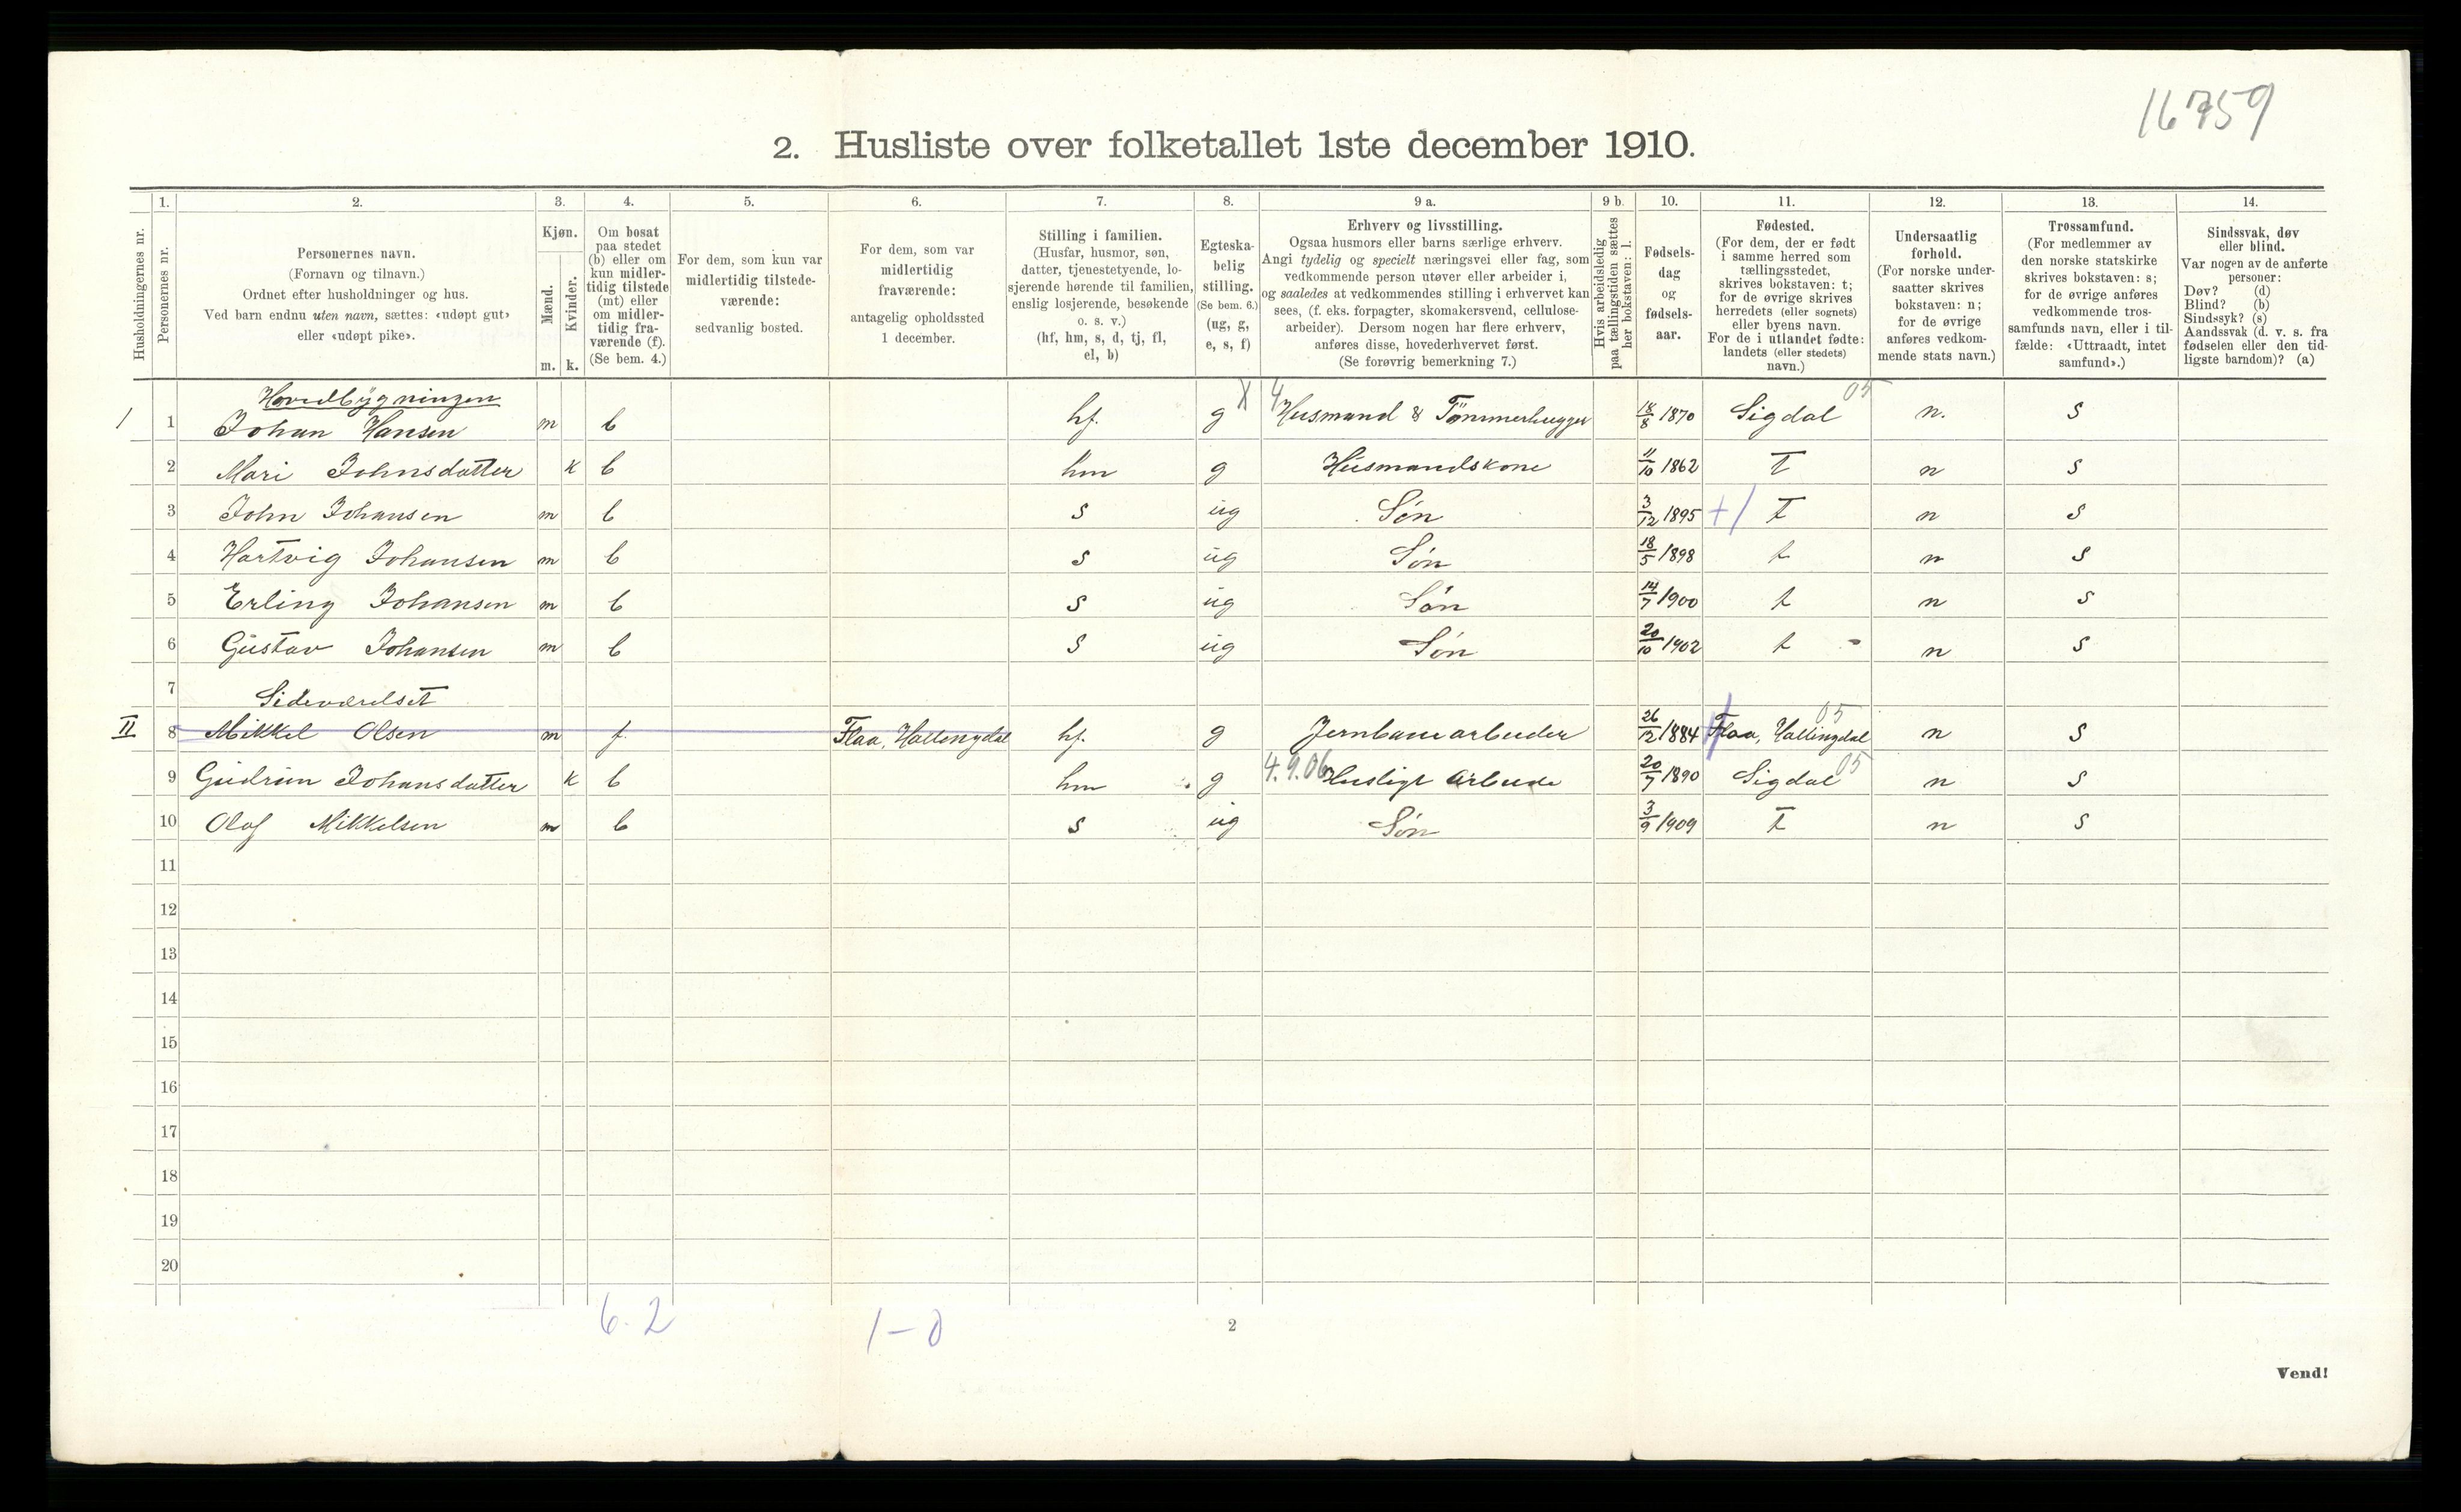 16759
2. Husliste over folketallet 1ste december 1910.
Husholdningernes nr.
1.
Personernes nr.
2.
Personernes navn.
(Fornavn og tilnavn.)
Ordnet efter husholdninger og hus.
Ved barn endnu uten navn, sættes: «udøpt gut»
eller «udøpt pike».
3.
Kjøn.
Mænd.
Kvinder.
m. k.
4.
Om bosat
paa stedet
(b) eller om
kun midler-
tidig tilstede
(mt) eller
om midler-
tidig fra-
værende (f).
(Se bem. 4.)
5.
For dem, som kun var
midlertidig tilstede-
værende:
sedvanlig bosted.
6.
For dem, som var
midlertidig
fraværende:
antagelig opholdssted
1 december.
7.
Stilling i familien.
(Husfar, husmor, søn,
datter, tjenestetyende, lo-
sjerende hørende til familien,
enslig losjerende, besøkende
o. s. v.)
(hf, hm, s, d, tj, fl,
el, b)
8.
Egteska-
belig
stilling.
(Se bem. 6.)
(ug, g,
e, s, f)
9 a.
Erhverv og livsstilling.
Ogsaa husmors eller barns særlige erhverv.
Angi tydelig og specielt næringsvei eller fag, som
vedkommende person utøver eller arbeider i,
og saaledes at vedkommendes stilling i erhvervet kan
sees, (f. eks. forpagter, skomakersvend, cellulose-
arbeider). Dersom nogen har flere erhverv,
anføres disse, hovederhvervet først.
(Se forøvrig bemerkning 7.)
9 b.
Hvis arbeidsledig
paa tællingstiden sættes
her bokstaven: l.
10.
Fødsels-
dag
og
fødsels-
aar.
11.
Fødested.
(For dem, der er født
i samme herred som
tællingsstedet,
skrives bokstaven: t;
for de øvrige skrives
herredets (eller sognets)
eller byens navn.
For de i utlandet fødte:
landets (eller stedets)
navn.)
12.
Undersaatlig
forhold.
(For norske under-
saatter skrives
bokstaven: n;
for de øvrige
anføres vedkom-
mende stats navn.)
13.
Trossamfund.
(For medlemmer av
den norske statskirke
skrives bokstaven: s;
for de øvrige anføres
vedkommende tros-
samfunds navn, eller i til-
fælde: «Uttraadt, intet
samfund».)
14.
Sindssvak, døv
eller blind.
Var nogen av de anførte
personer:
Døv? (d)
Blind? (b)
Sindssyk? (s)
Aandssvak (d. v. s. fra
fødselen eller den tid-
ligste barndom)? (a)
Hovedbygningen
1 1 Johan Hansen m b hf. g X 4 Husmand & Tømmerhugger 18/8 1870 Sigdal 05 n. s
2 Mari Johnsdatter k b hm g Husmandskone 11/10 1862 T n s
3 John Johansen m b s ug Søn 3/12 1895 +/ T n s
4 Hartvig Johansen m b s ug Søn 18/5 1898 t n s
5 Erling Johansen m b s ug Søn 14/7 1900 t n s
6 Gustav Johansen m b s ug Søn 20/10 1902 t n s
7 Sideværelset
II 8 Mikkel Olsen m f. Flaa, Hallingdal hf. g Jernbanearbeider 26/12 1884 Flaa, Hallingdal 05 n s
9 Gudrun Johansdatter k b hm g 4.9.06 Husligt arbeide 20/7 1890 Sigdal 05 n s
10 Olaf Mikkelsen m b s ug Søn 3/9 1909 T n s
11
12
13
14
15
16
17
18
19
20
6. 2
1 - 0
2
Vend!